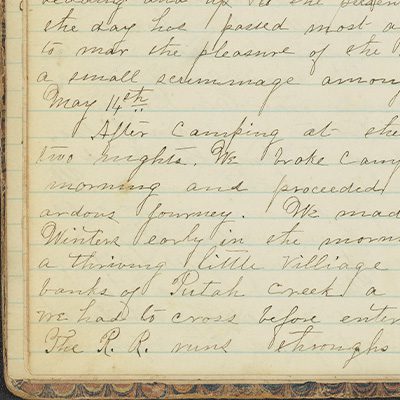 reading and up to the presen
the day has passed most a
to mar the pleasure of the
a small scrummage among
May 14th
After Camping at the
two nights. We broke Camp
morning and proceeded
ardous journey. We mad
Winters early in the morni
a thriving little Villiage
banks of Putah Creek a
we had to cross before enter
The R. R. runs through